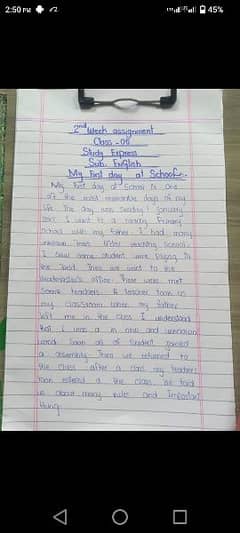 2:50 PM
45%
2nd Week assignment
Class - 06
Study Express
Sub: English
My First day at School:-
My First day at School is one
of the most memorable days of my
life. The day was Sunday 1 January
I went to a nearby Primary
School with my father. I had many
unknown school.
I saw some student were playing in
the field. Then we went to the
Headmaster's office. There we met
some teachers. A teacher took us
my classroom. When my father
left me in the class I understood
that I was in a new and unknown
world. Soon all of student joined
a assembly. Then we returned to
the class. after a class my teacher
the class. he told
us about many rules and important
thing.